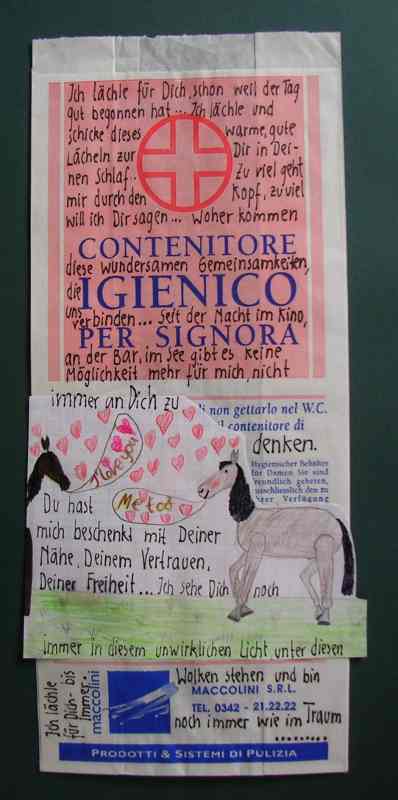 Ich lächle für Dich, schon weil der Tag
gut begonnen hat... Ich lächle und
schicke dieses warme, gute
Lächeln zur Dir in Dei-
nen Schlaf.. Zu viel geht
mir durch den Kopf, zu viel
will ich Dir sagen... Woher kommen
CONTENITORE
diese wundersamen Gemeinsamkeiten,
die IGIENICO
uns verbinden... Seit der Nacht im Kino,
PER SIGNORA
an der Bar, im See gibt es keine
Möglichkeit mehr für mich, nicht
immer an Dich zu
di non gettarlo nel W.C.
il contenitore di
denken.
Hygienischer Behälter
für Damen Sie sind
freundlich gebeten,
ausschliesslich den zu
Verfügung
I love you
Me too
Du hast
mich beschenkt mit Deiner
Nähe, Deinem Vertrauen,
Deiner Freiheit... Ich sehe Dich noch
immer in diesem unwirklichen Licht unter diesen
Wolken stehen und bin
MACCOLINI S.R.L.
TEL. 0342 - 21.22.22
noch immer wie im Traum
.........
Ich lächle
für Dich - bis
immer.
maccolini
PRODOTTI & SISTEMI DI PULIZIA